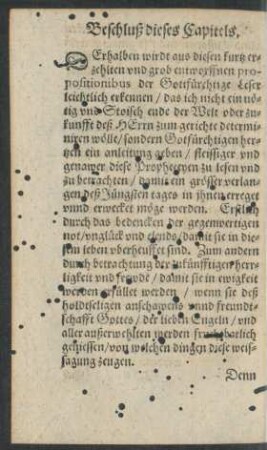 Beschluß dieses Capitels.
DErhalben wirdt aus diesen kurtz er-
zehlten vnd grob entworffnen pro-
positionibus der Gottfürchtige Leser
leichtlich erkennen / das ich nicht ein nö-
tig vnd Stoisch ende der Welt oder zu-
kunfft deß HErrn zum gerichte determi-
niren wölle / sondern Gotfürchtigen her-
tzen ein anleitung geben / fleissiger vnd
genawer diese Propheceyen zu lesen vnd
zu betrachten / damit ein grösser verlan-
gen deß Jüngsten tages in ihnen erreget
vnnd erwecket möge werden. Erstlich
durch das bedencken der gegenwertigen
not / vnglück vnd elends damit sie in die-
sem leben vberheuffet sind. Zum andern
durch betrachtung der zukünfftigen herr-
ligkeit vnd frewde / damit sie in ewigkeit
werden erfüllet werden / wenn sie deß
holdtseligen anschawens vnnd freundt-
schafft Gottes / der lieben Engeln / vnd
aller außerwehlten werden fruchtbarlich
geniessen / von welchen dingen diese weis-
sagung zeugen.
Denn